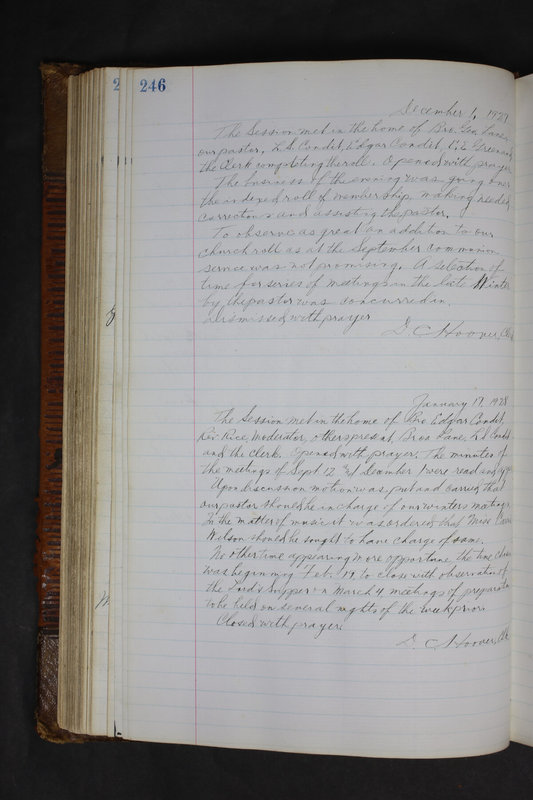 246
December 1, 1927
The Session met in the home of Bro. Geo. Lane,
our pastor, L. S. Condit, Edgar Condit, C. E. Green and
the Clerk completing the roll. Opened with prayer
The business of the evening was going over
the indexed roll of membership making needed
corrections and assisting the pastor.
To observe as great an addition to our
church roll as at the September communion
service was not promising. A selection of
time for series of meetings in the late Winter
by the pastor was concurred in.
Dismissed with prayer
D C Hoover, Clerk
January 17 1928
The Session met in the home of Bro. Edgar Condit,
Rev Rice, Moderator, others present Bros Lane, L S Condit
and the Clerk. Opened with prayer. The minutes of
the meetings of Sept 12 and December 1 were read and
Upon discussion motion was put and carried that
our pastor should be in charge of our winters meetings
In the matter of music it was ordered that Miss
Wilson should be sought to have charge of same.
No other time appearing more opportune the time chosen
was beginning Feb. 19, to close with observation of
the Lord's Supper on March 4 meetings of preparation
to be held on several nights of the week prior.
Closed with prayer.
D. C Hoover, Clk